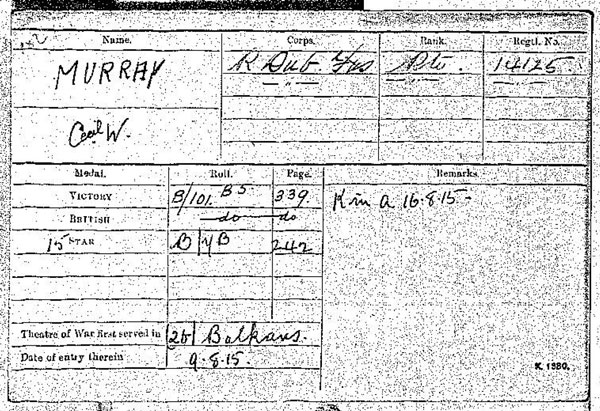 Name. Corps. Rank. Regtl. No.
MURRAY R Dub Fus Pte. 14125
— " — — " —
Cecil W.
Medal. Roll. Page. Remarks.
VICTORY B/101. B5 339. K in a 16.8.15.
BRITISH —do— do
15 STAR B/4B 242
Theatre of War first served in 2b/Balkans.
Date of entry therein 9.8.15.
K. 1380.